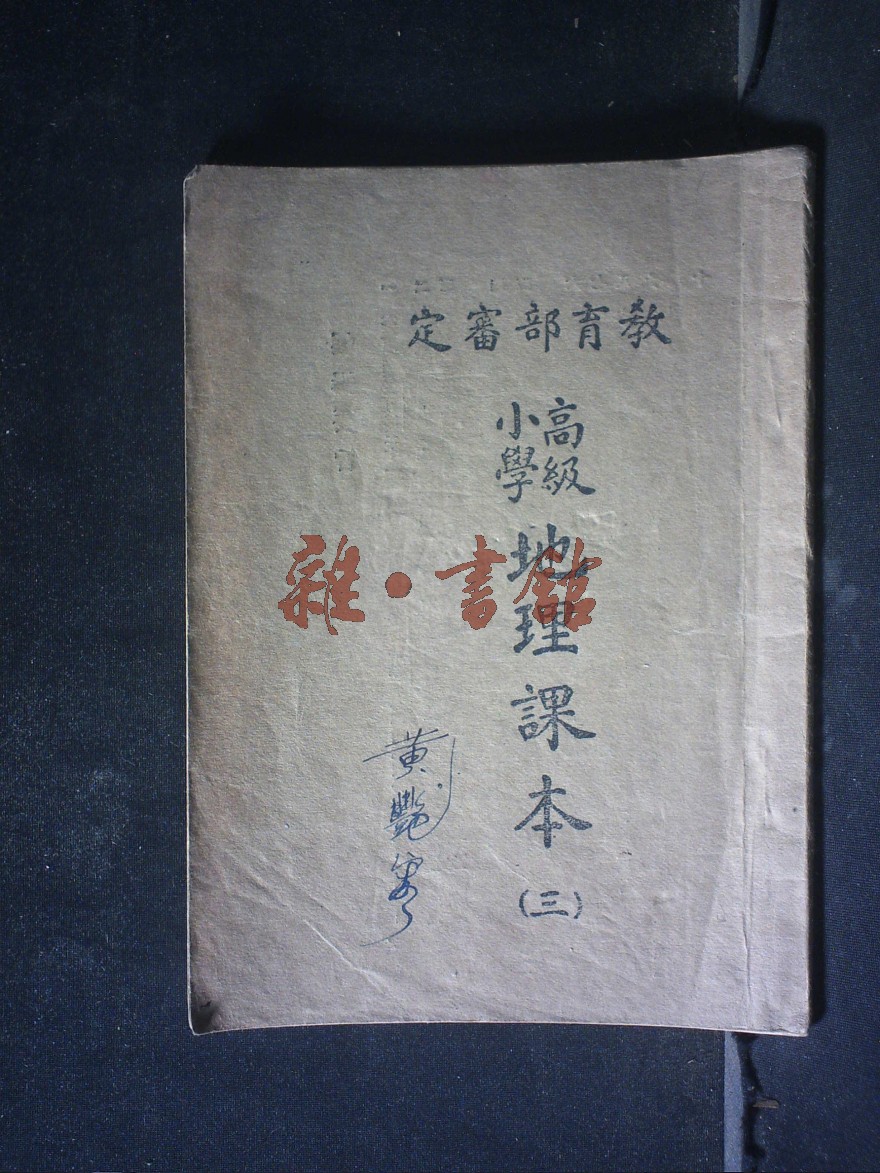 教育部審定
高級
小學
地理課本(三)
雜·書館
黃艷